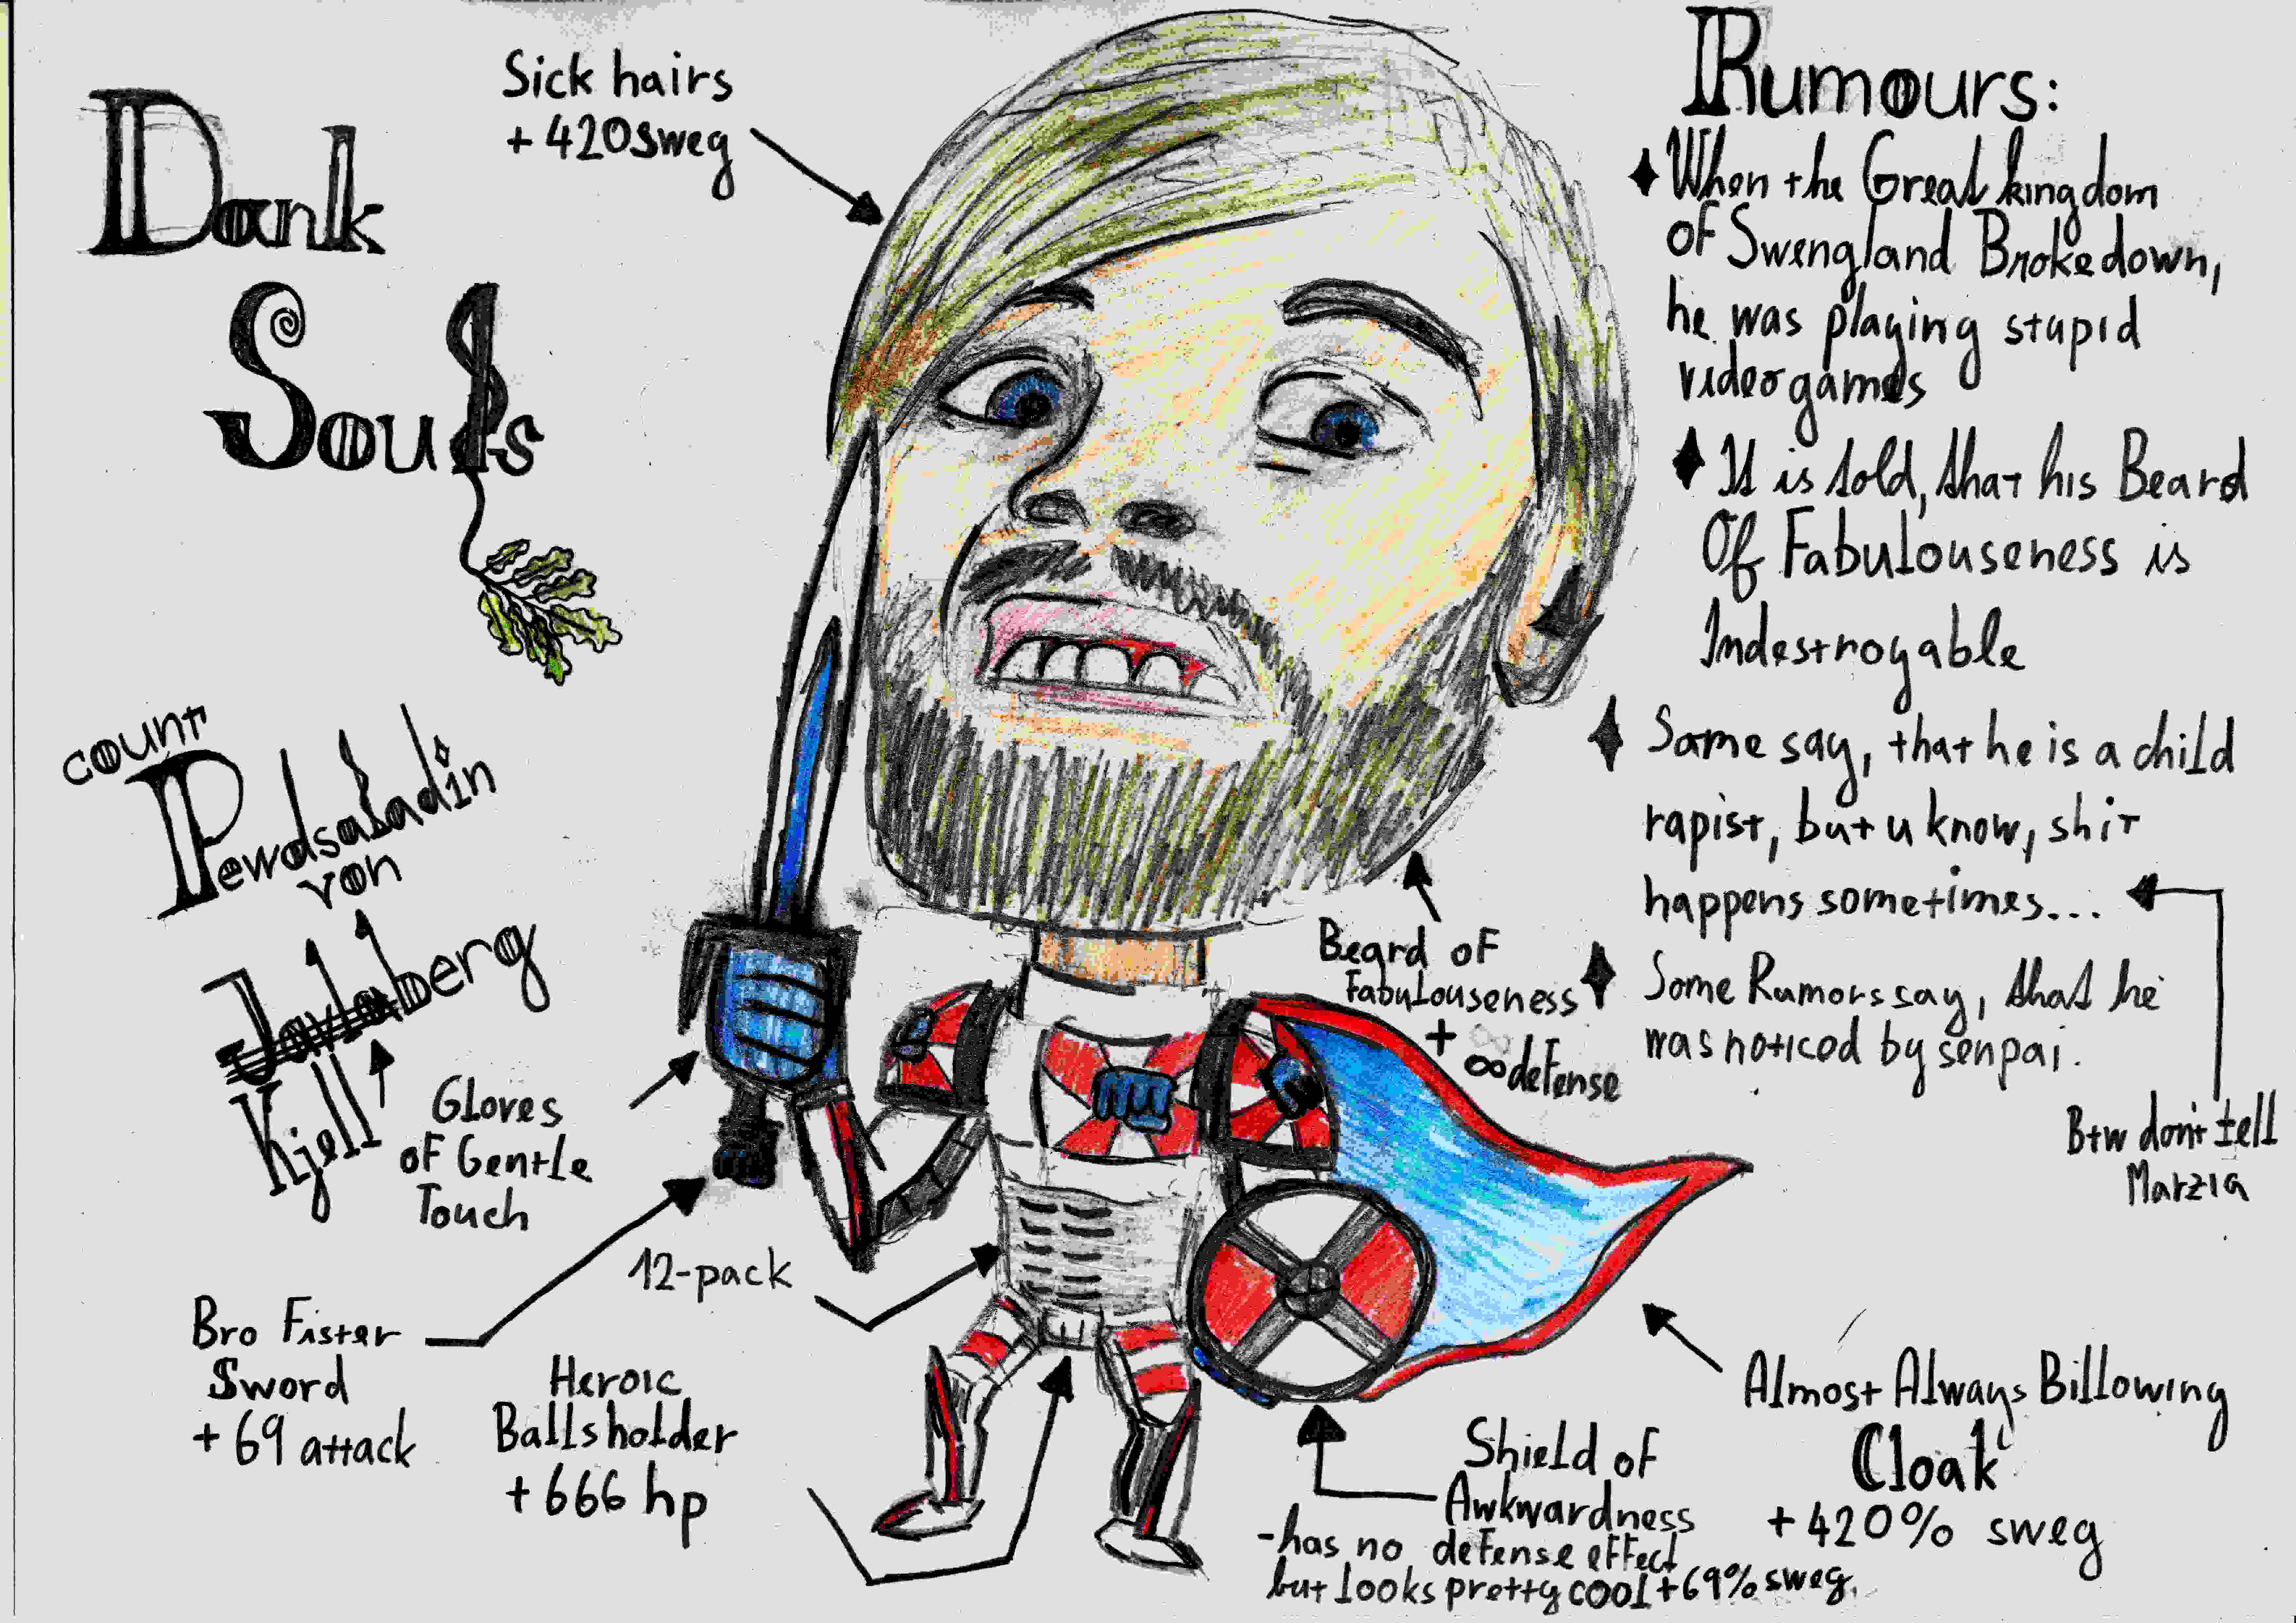 Dank
Souls
Sick hairs
+ 420 sweg
Rumours:
When the Great kingdom
of Swengland Broke down,
he was playing stupid
videogames
It is told, that his Beard
Of Fabulouseness is
Indestroyable
Some say, that he is a child
rapist, but u know, shit
happens sometimes...
Some Rumors say, that he
was noticed by senpai.
Btw don't tell
Marzia
count
Pewdsaladin
von
Javlaberg
Kjell
Gloves
of Gentle
Touch
Beard of
Fabulouseness
+ ∞ defense
12-pack
Bro Fister
Sword
+ 69 attack
Heroic
Ballsholder
+ 666 hp
Shield of
Awkwardness
-has no defense effect
but looks pretty cool +69% sweg.
Almost Always Billowing
Cloak
+420% sweg